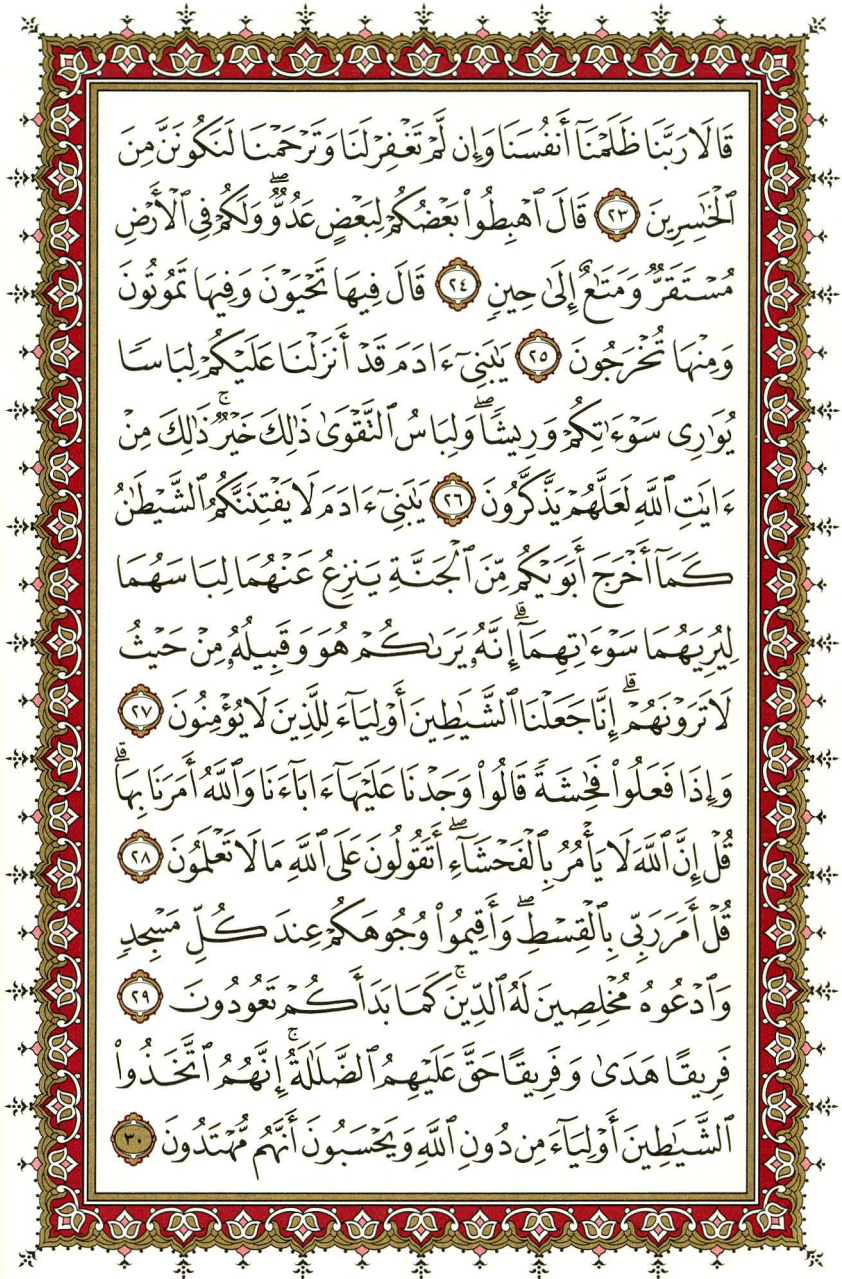 قَالَا رَبَّنَا ظَلَمْنَآ أَنفُسَنَا وَإِن لَّمْ تَغْفِرْ لَنَا وَتَرْحَمْنَا لَنَكُونَنَّ مِنَ
ٱلْخَٰسِرِينَ ٢٣ قَالَ ٱهْبِطُوا۟ بَعْضُكُمْ لِبَعْضٍ عَدُوٌّ ۖ وَلَكُمْ فِى ٱلْأَرْضِ
مُسْتَقَرٌّ وَمَتَٰعٌ إِلَىٰ حِينٍ ٢٤ قَالَ فِيهَا تَحْيَوْنَ وَفِيهَا تَمُوتُونَ
وَمِنْهَا تُخْرَجُونَ ٢٥ يَٰبَنِىٓ ءَادَمَ قَدْ أَنزَلْنَا عَلَيْكُمْ لِبَاسًا
يُوَٰرِى سَوْءَٰتِكُمْ وَرِيشًا ۖ وَلِبَاسُ ٱلتَّقْوَىٰ ذَٰلِكَ خَيْرٌ ۚ ذَٰلِكَ مِنْ
ءَايَٰتِ ٱللَّهِ لَعَلَّهُمْ يَذَّكَّرُونَ ٢٦ يَٰبَنِىٓ ءَادَمَ لَا يَفْتِنَنَّكُمُ ٱلشَّيْطَٰنُ
كَمَآ أَخْرَجَ أَبَوَيْكُم مِّنَ ٱلْجَنَّةِ يَنزِعُ عَنْهُمَا لِبَاسَهُمَا
لِيُرِيَهُمَا سَوْءَٰتِهِمَآ ۗ إِنَّهُۥ يَرَىٰكُمْ هُوَ وَقَبِيلُهُۥ مِنْ حَيْثُ
لَا تَرَوْنَهُمْ ۗ إِنَّا جَعَلْنَا ٱلشَّيَٰطِينَ أَوْلِيَآءَ لِلَّذِينَ لَا يُؤْمِنُونَ ٢٧
وَإِذَا فَعَلُوا۟ فَٰحِشَةً قَالُوا۟ وَجَدْنَا عَلَيْهَآ ءَابَآءَنَا وَٱللَّهُ أَمَرَنَا بِهَا ۗ
قُلْ إِنَّ ٱللَّهَ لَا يَأْمُرُ بِٱلْفَحْشَآءِ ۖ أَتَقُولُونَ عَلَى ٱللَّهِ مَا لَا تَعْلَمُونَ ٢٨
قُلْ أَمَرَ رَبِّى بِٱلْقِسْطِ ۖ وَأَقِيمُوا۟ وُجُوهَكُمْ عِندَ كُلِّ مَسْجِدٍ
وَٱدْعُوهُ مُخْلِصِينَ لَهُ ٱلدِّينَ ۚ كَمَا بَدَأَكُمْ تَعُودُونَ ٢٩
فَرِيقًا هَدَىٰ وَفَرِيقًا حَقَّ عَلَيْهِمُ ٱلضَّلَٰلَةُ ۚ إِنَّهُمُ ٱتَّخَذُوا۟
ٱلشَّيَٰطِينَ أَوْلِيَآءَ مِن دُونِ ٱللَّهِ وَيَحْسَبُونَ أَنَّهُم مُّهْتَدُونَ ٣٠